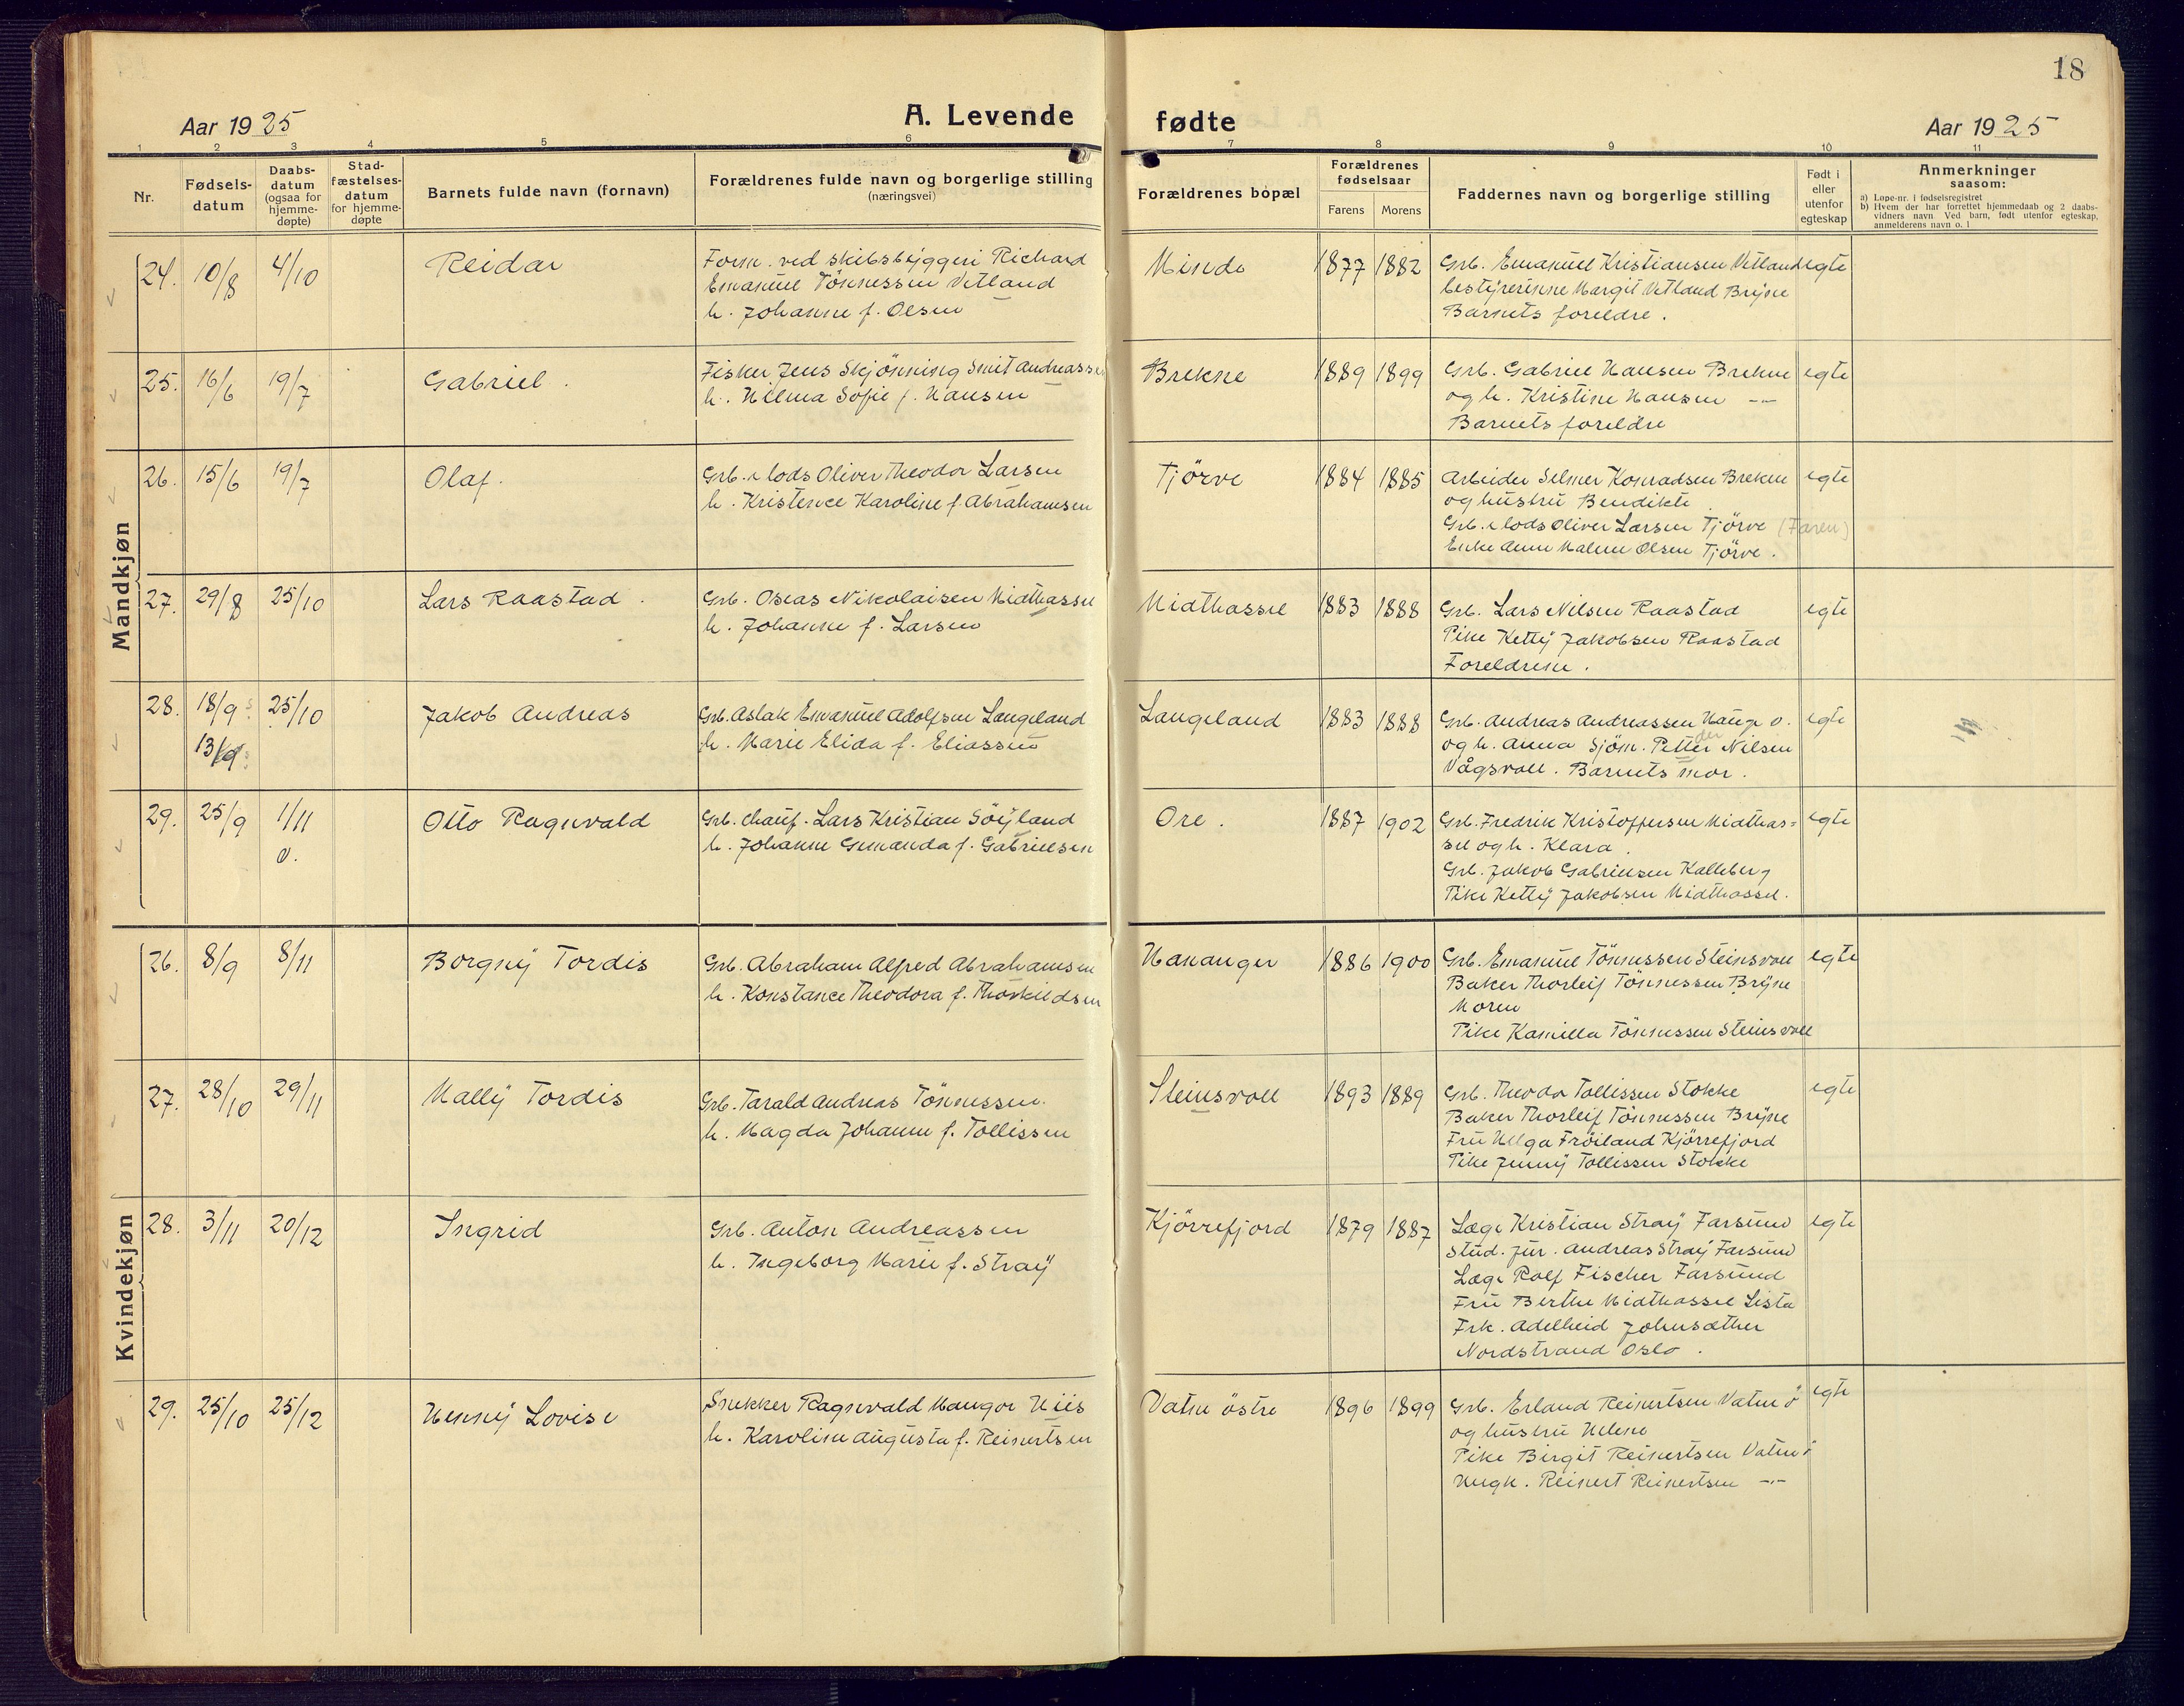 18
Aar 1925
A. Levende fødte
Aar 1925
1 2 3 4 5 6 7 8 9 10 11
Nr.
Fødsels-datum
Daabs-datum (ogsaa for hjemme-døpte)
Stad-fæstelses-datum for hjemme-døpte
Barnets fulde navn (fornavn)
Forældrenes fulde navn og borgerlige stilling
(næringsvei)
Forældrenes bopæl
Forældrenes fødselsaar
Farens Morens
Faddernes navn og borgerlige stilling
Født i eller utenfor egteskap
Anmerkninger
saasom:
a) Løpe-nr. i fødselsregistret
b) Hvem der har forrettet hjemmedaab og 2 daabs-
vidners navn. Ved barn, født utenfor egteskap,
anmelderens navn o. l
Mandkjøn
24. 10/8 4/10 Reidar
Form. ved skibsbyggeri Richard
Emanuel Tönnessen Vetland
h. Johanne f. Olsen
Minde 1877 1882
Grb. Emanuel Kristiansen Vetland
bestyrerinne Margit Vetland Bryne
Barnets foreldre.
egte
25. 16/6 19/7 Gabriel.
Fisker Jens Skjönning Smit Andreassen
h. Hilma Sofie f. Hansen
Brekne 1889 1899
Grb. Gabriel Hansen Brekne
og h. Kristine Hansen -"-
Barnets foreldre
egte
26. 15/6 19/7 Olaf.
Grb. & lods Oliver Theodor Larsen
h. Kristence Karoline f. Abrahamsen
Tjörve 1884 1885
Arbeider Selmer Konradsen Brekne
og hustru Bendikte
Grb. & lods Oliver Larsen Tjörve (Faren)
Enke Anne Malene Olsen Tjörve.
egte
27. 29/8 25/10 Lars Raastad.
Grb. Oseas Nikolaisen Midthassel
h. Johanne f. Larsen
Midthassel 1883 1888
Grb. Lars Nilsen Raastad
Pike Ketty Jakobsen Raastad
Foreldrene.
egte
28. 18/9 25/10 Jakob Andreas
13/9
Grb. Aslak Emanuel Adolfsen Langeland
h. Marie Elida f. Eliassen
Langeland 1883 1888
Grb. Andreas Andreassen Hauge v.
og h. Anna Sjöm. Petter Nilsen
Vågsvoll. Barnets mor.
egte
29. 25/9 1/11 Otto Ragnvald
Grb. chauf. Lars Kristian Söyland
h. Johanne Gunanda f. Gabrielsen
Ore. 1887 1902
Grb. Fredrik Kristoffersen Midthas=
sel og h. Klara.
Grb. Jakob Gabrielsen Kalleberg
Pike Ketty Jakobsen Midthassel.
egte
Kvindekjøn
26. 8/9 8/11 Borgny Tordis
Grb. Abraham Alfred Abrahamsen
h. Konstance Theodora f. Thorkildsen
Hananger 1886 1900
Grb. Emanuel Tönnessen Steinsvoll
Baker Thorleif Tönnessen Bryne
Moren
Pike Kamilla Tönnessen Steinsvoll
egte
27. 28/10 29/11 Mally Tordis
Grb. Tarald Andreas Tönnessen.
h. Magda Johanne f. Tollissen
Steinsvoll 1893 1889
Grb. Theodor Tollissen Stokke
Baker Thorleif Tönnessen Bryne
Fru Helga Fröiland Kjörrefjord
Pike Jenny Tollissen Stokke
egte
28. 3/11 20/12 Ingrid
Grb. Anton Andreassen
h. Ingeborg Marie f. Stray
Kjörrefjord 1879 1887
Læge Kristian Stray Farsund
Stud. jur. Andreas Stray Farsund
Læge Rolf Fischer Farsund
Fru Berthe Midthassel Lista
Frk. Adelheid Johnsæther
Nordstrand Oslo.
egte
29. 25/10 25/12 Henny Lovise
Snekker Ragnvald Mangor Hiis
h. Karoline Augusta f. Reinertsen
Vatne östre 1896 1899
Grb. Erland Reinertsen Vatne ö
og hustru Helene
Pike Birgit Reinertsen Vatne ö
Ungk. Reinert Reinertsen -"-
egte